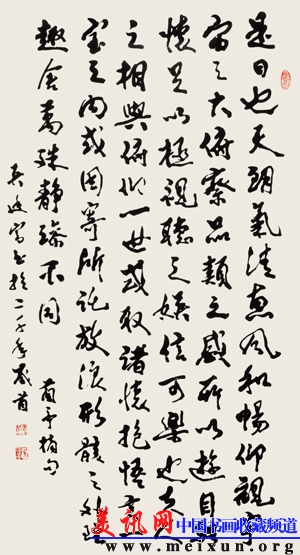 是日也天朗氣清惠風和暢仰觀宇
宙之大俯察品類之盛所以遊目騁
懷足以極視聽之娛信可樂也夫人
之相與俯仰一世或取諸懷抱悟言一
室之内或因寄所託放浪形骸之外雖
趣舍萬殊靜躁不同 蘭亭摘句
書於二千年歲首
美讯网 中国书画收藏频道
www.meixun.org